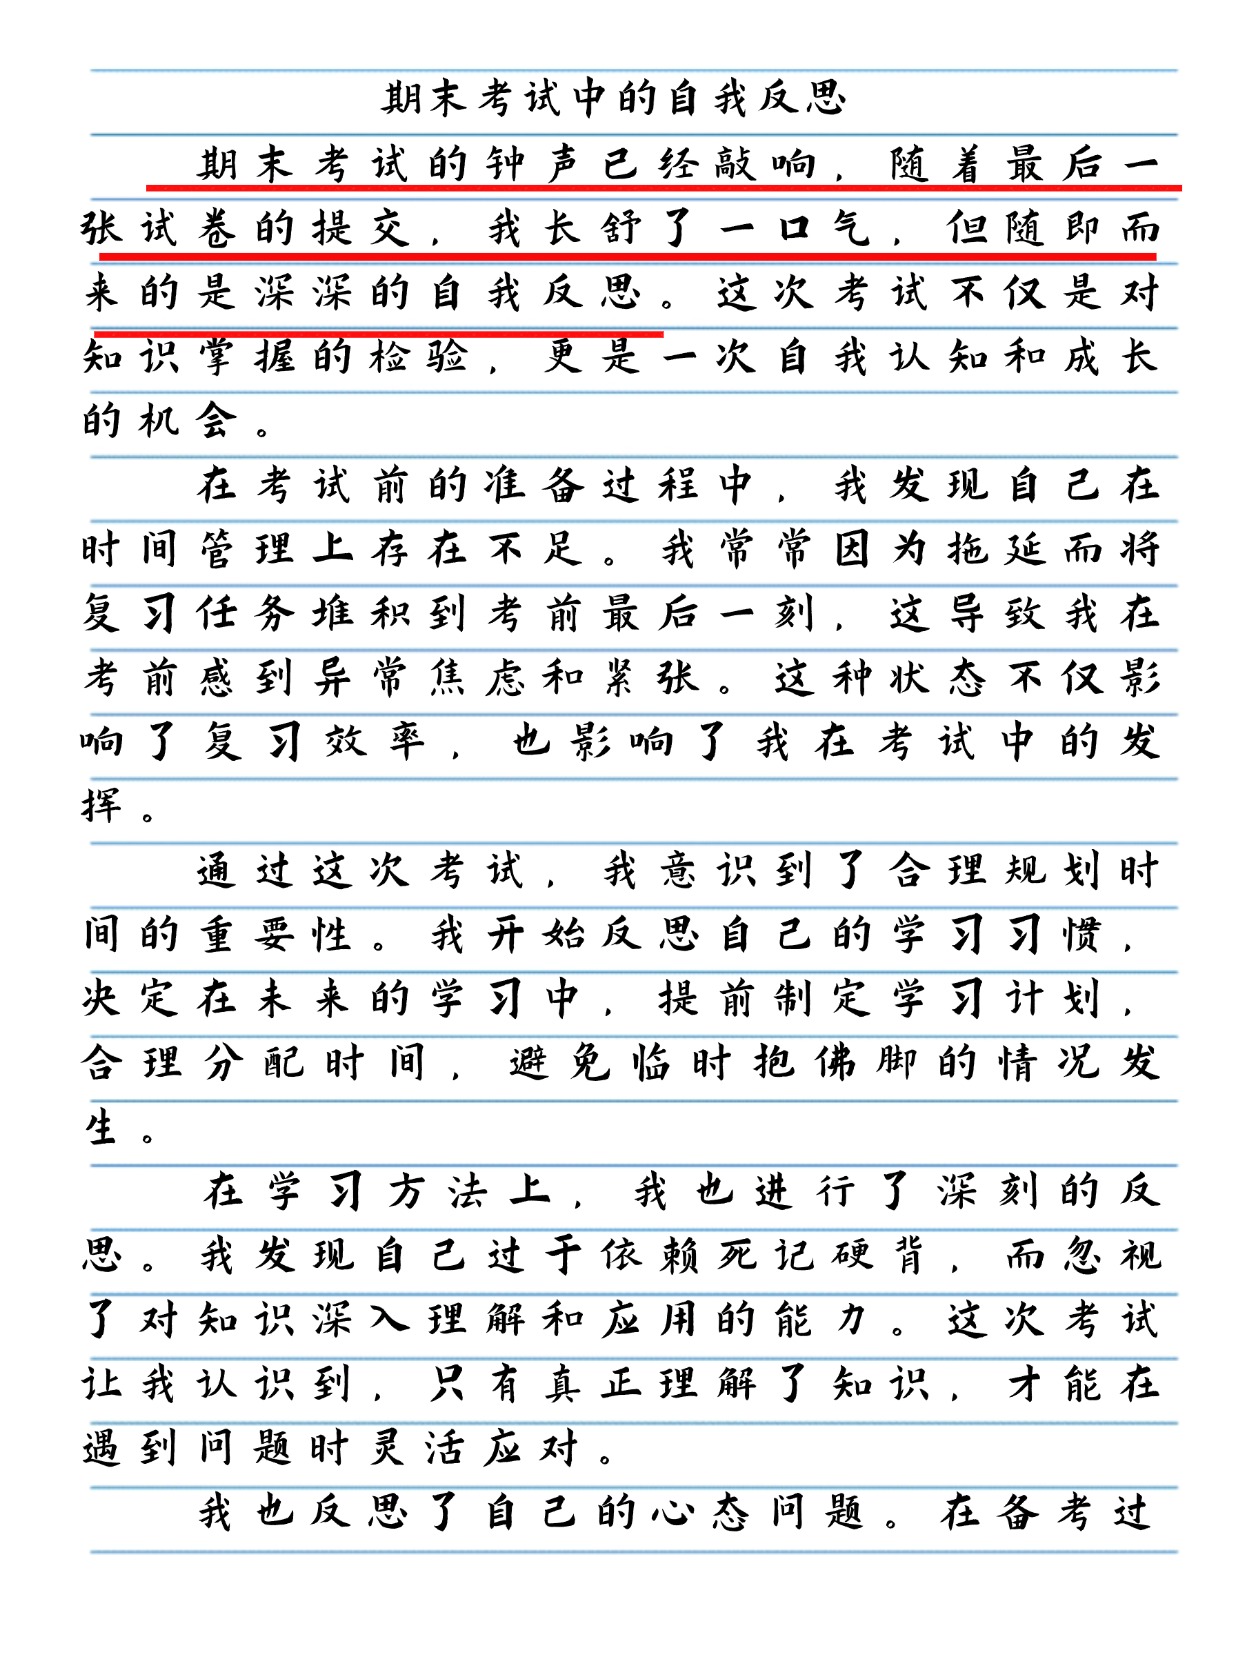 期末考试中的自我反思
期末考试的钟声已经敲响，随着最后一
张试卷的提交，我长舒了一口气，但随即而
来的是深深的自我反思。这次考试不仅是对
知识掌握的检验，更是一次自我认知和成长
的机会。
在考试前的准备过程中，我发现自己在
时间管理上存在不足。我常常因为拖延而将
复习任务堆积到考前最后一刻，这导致我在
考前感到异常焦虑和紧张。这种状态不仅影
响了复习效率，也影响了我在考试中的发
挥。
通过这次考试，我意识到了合理规划时
间的重要性。我开始反思自己的学习习惯，
决定在未来的学习中，提前制定学习计划，
合理分配时间，避免临时抱佛脚的情况发
生。
在学习方法上，我也进行了深刻的反
思。我发现自己过于依赖死记硬背，而忽视
了对知识深入理解和应用的能力。这次考试
让我认识到，只有真正理解了知识，才能在
遇到问题时灵活应对。
我也反思了自己的心态问题。在备考过